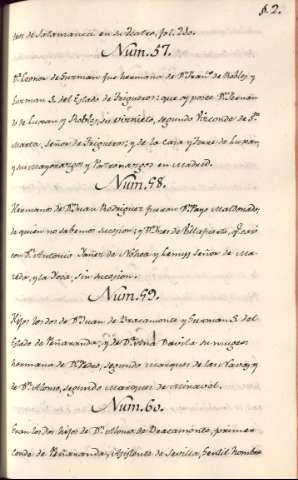 82.
tor de Salamanca en su teatro, fol. 230.
Num. 57.
Dª. Leonor de Guzman fue hermana de Dn. Franco. de Robles y
Guzman S. del Estado de Trigueros: que oy posee Dn. Fernan-
do de Luxan y Robles, su visnieto, segundo Vizconde de Sta.
Marta, señor de Trigueros, y de la Casa y torre de Luxan,
y sus mayorazgos y Patronazgos en Madrid.
Num. 58.
Hermanos de Dn. Juan Rodriguez fueron Dn. Payo Maldonado,
de quien no sabemos sucesion; y Dª. Ines de Villafuerte, q. casó
con Dn. Antonio Yañez de Nóboa y Lemos señor de Ma-
zeda, y la Rosa, sin sucesion.
Num. 59.
Hijos los dos de Dn. Juan de Bracamonte y Guzman S. del
Estado de Peñaranda; y de Dª. Ana Davila su muger
hermana de Dn. Pedro, segundo marques de las Navas, y
de Dn. Alonso, segundo Marques de Mirabel.
Num. 60.
Eran los dos hijos de Dn. Alonso de Bracamonte, primer
conde de Peñaranda, Asistente de Sevilla, Gentil hombre